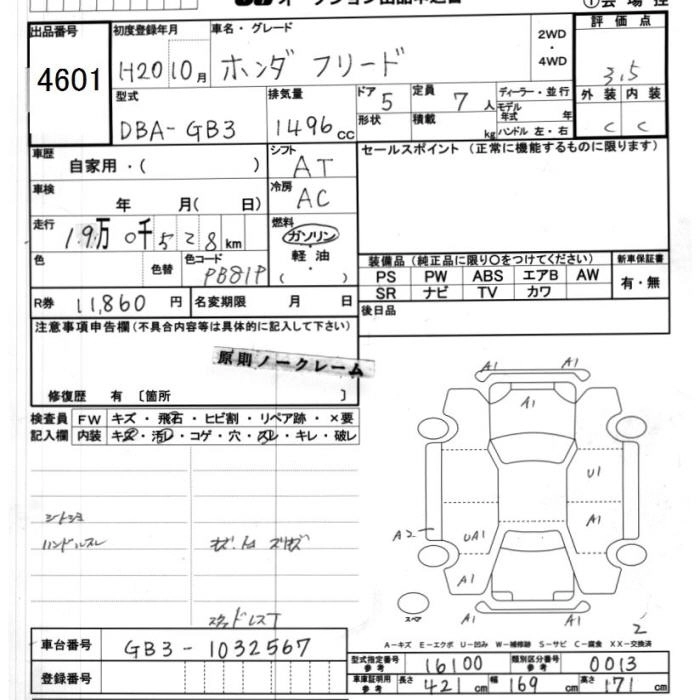 ①会場控
出品番号 初度登録年月 車名・グレード 2WD・4WD 評価点
4601 H20 10月 ホンダ フリード 3.5
型式 排気量 ドア 5 定員 7人 ディーラー・並行 外装 内装
DBA-GB3 1496cc 形状 積載 kg モデル年式 年 ハンドル 左・右 C C
車歴 シフト セールスポイント (正常に機能するものに限ります)
自家用・( ) AT
車検 冷房
年 月( 日) AC
走行 燃料
1 9万 0千 5 2 8 km ガソリン
色 色替 色コード PB81P 軽油 ( ・ )
装備品 (純正品に限り○をつけてください) 新車保証書
PS PW ABS エアB AW 有・無
SR ナビ TV カワ
R券 11,860 円 名変期限 月 日
後日品
注意事項申告欄 (不具合内容等は具体的に記入して下さい)
原則ノークレーム
修復歴 有 〔箇所 〕
検査員 FW キズ・飛石・ヒビ割・リペア跡・×要
記入欄 内装 キズ・汚レ・コゲ・穴・スレ・キレ・破レ
A1 A1
A1
U1
A1
A2
UA1
A1
A1 A1
シトシミ
ハンドルスレ
スタッドレスT
スペア
2
A-キズ E-エクボ U-凹み W-補修跡 S-サビ C-腐食 XX-交換済
車台番号 GB3-1032567
型式指定番号 参考 16100 類別区分番号 参考 0013
登録番号
車庫証明用 参考 長さ 421 cm 幅 169 cm 高さ 171 cm